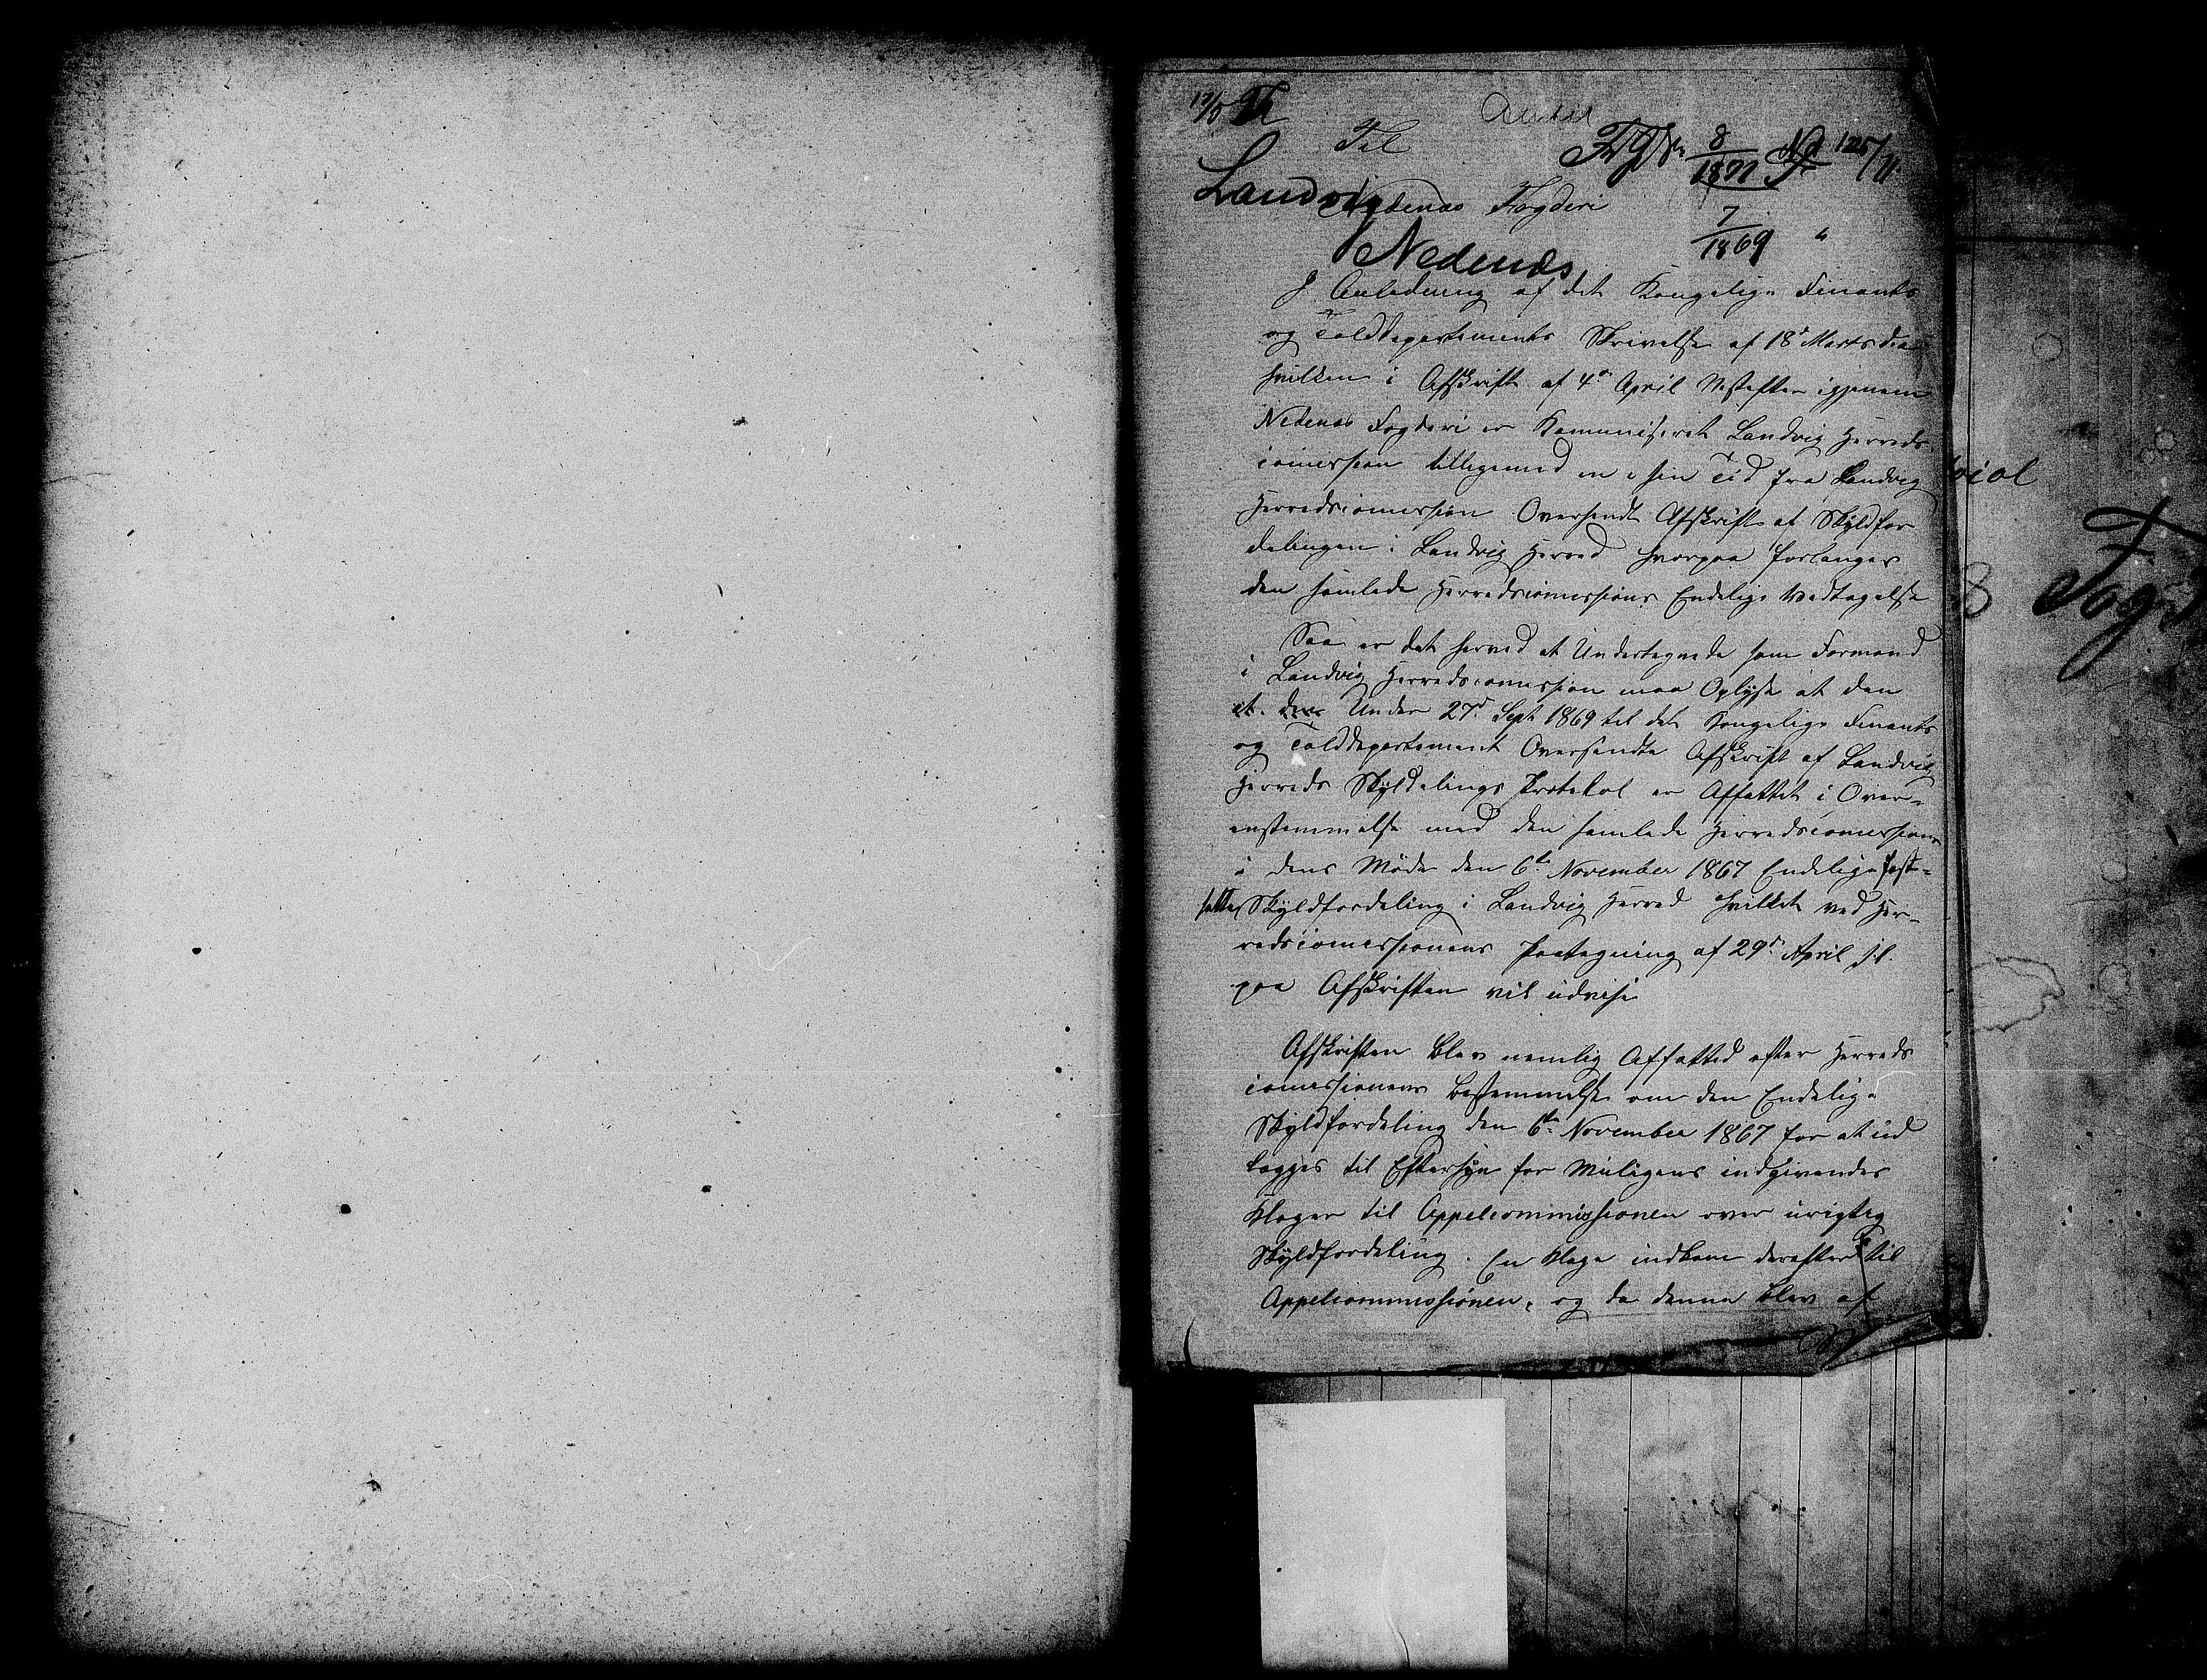 Til
Landvig
Nedenæs Fogderi
8/1871
No 125/71.
7/1869 "
Nedenæs
I Anledning af det Kongelige Finants
og Tolddepartements Skrivelse af 18d Marts d.a.
hvilken i Afskrift af 4de April Næstefter igjennem
Nedenæs Fogderi er Kommuniseret Landvig Herreds
comission tilligemed en i sin Tid fra Landvig
Herredscomission Oversendt Afskrift af Skyldfor
delingen i Landvig Herred hvorpaa forlanges
den samlede Herredscomissions Endelige Vedtagelse
Saa er det herved at Undertegnede som Formand
i Landvig Herredscomission maa Oplyse at den
Under 27d Sept 1869 til det Kongelige Finants
og Tolddepartement Oversendte Afskrift af Landvig
Herreds Skyldelings Protokol er Affattet i Over-
enstemmelse med den samlede Herredscomissions
i dens Møde den 6te November 1867 Endelige fast-
satte Skyldfordeling i Landvig Herred hvilket ved Her-
redscomissionens Paategning af 29de April
paa Afskriften vil udvise
Afskriften blev nemlig Affatted efter Herreds
comissionens Bestemmelse om den Endelige
Skyldfordeling den 6te November 1867 for at ud
legges til Eftersyn for Muligens indgivendes
Klager til Appelcommissionen over urigtig
Skyldfordeling. En Klage indkom derefter til
Appelcommissionen, og da denne blev af
Fog